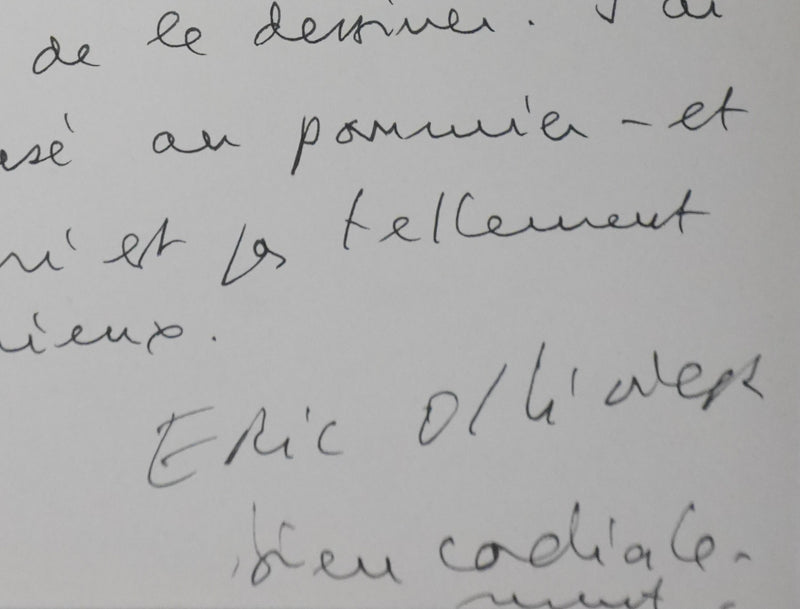 de le dessiner. J'ai
usé au pommier - et
ni est pas tellement
ieux.
Eric Ollivier
bien cordiale-
ment.